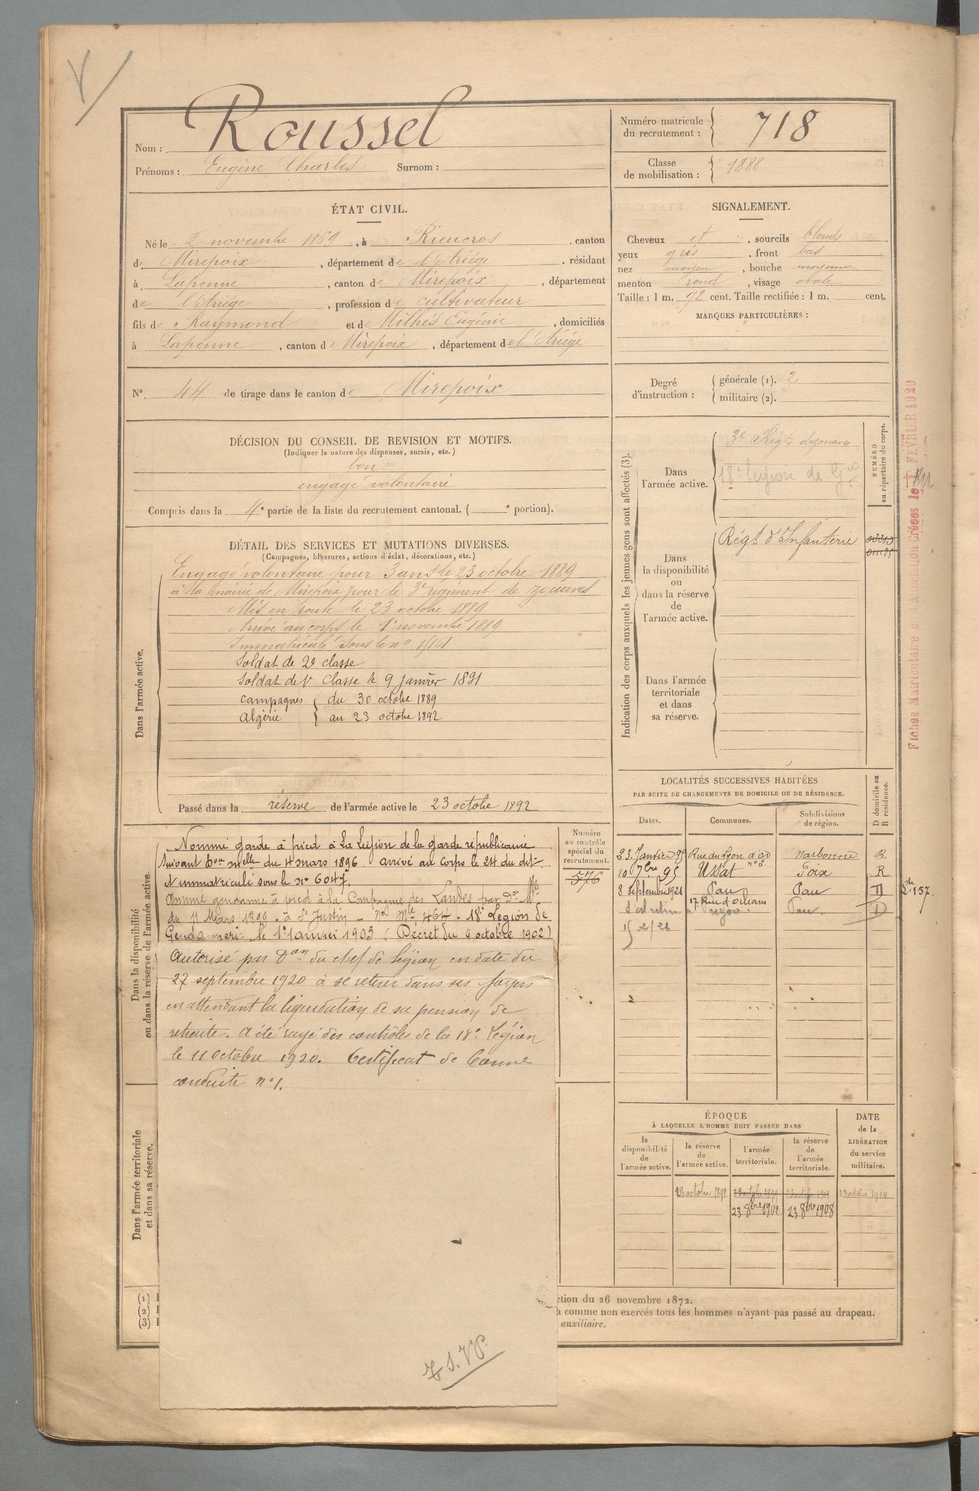 Nom : Roussel
Prénoms : Eugène Charles Surnom :
Numéro matricule du recrutement : 718
Classe de mobilisation : 1888
ÉTAT CIVIL.
Né le 2 novembre 1869, à Rieucros, canton
de Mirepoix, département de l'Ariège, résidant
à Lapenne, canton de Mirepoix, département
de l'Ariège, profession de cultivateur
fils de Raymond et de Milhès Eugénie, domiciliés
à Lapenne, canton de Mirepoix, département de l'Ariège
N° 44 de tirage dans le canton de Mirepoix
SIGNALEMENT.
Cheveux et, sourcils blonds
yeux gris, front bas
nez moyen, bouche moyenne
menton rond, visage ovale
Taille : 1 m. 72 cent. Taille rectifiée : 1 m. cent.
MARQUES PARTICULIÈRES :
Degré d'instruction : générale (1). 2
militaire (2).
DÉCISION DU CONSEIL DE REVISION ET MOTIFS.
(Indiquer la nature des dispenses, sursis, etc.)
bon
engagé volontaire
Compris dans la 4e partie de la liste du recrutement cantonal. ( e portion).
DÉTAIL DES SERVICES ET MUTATIONS DIVERSES.
(Campagnes, blessures, actions d'éclat, décorations, etc.)
Dans l'armée active.
Engagé volontaire pour 3 ans le 23 octobre 1889
à la mairie de Mirepoix pour le 3e régiment de zouaves
Mis en route le 23 octobre 1889
Arrivé au corps le 1er novembre 1889
Immatriculé sous le n°
Soldat de 2e classe
Soldat de 1e classe le 9 janvier 1891
Campagnes du 30 octobre 1889
Algérie au 23 octobre 1892
Passé dans la réserve de l'armée active le 23 octobre 1892
Indication des corps auxquels les jeunes gens sont affectés (3).
NUMÉRO au répertoire du corps.
Dans l'armée active.
3e Régt de zouaves
18e Légion de Gie
Dans la disponibilité ou dans la réserve de l'armée active.
Régt d'Infanterie
Dans l'armée territoriale et dans sa réserve.
Fiches Matriculaire et
FÉVRIER 1920
Dans la disponibilité ou dans la réserve de l'armée active.
Nommé garde à pied à la Légion de la garde républicaine
suivant Don mlle du 4 mars 1896 arrivé au corps le 24 du dit
Immatriculé sous le N° 6047
Nommé gendarme à pied à la Compagnie des Landes par Don Mlle
du 11 Mars 1899 - à St Justin - No Mle 464 - 18e Légion de
Gendarmerie le 1er janvier 1903 (Décret du 6 octobre 1902)
Autorisé par Don du chef de Légion en date du
27 septembre 1920 à se retirer dans ses foyers
en attendant la liquidation de sa pension de
retraite. A été rayé des contrôles de la 18e Légion
le 11 octobre 1920. Certificat de bonne
conduite n° 1.
Numéro au contrôle spécial du recrutement.
576
LOCALITÉS SUCCESSIVES HABITÉES
PAR SUITE DE CHANGEMENTS DE DOMICILE OU DE RÉSIDENCE.
Dates. Communes. Subdivisions de région. D domicile ou R résidence.
23 Janvier 95 Rue du Lyon d'or n° 6 Narbonne R.
10 7bre 95 Ussat Foix R
8 Septembre 1921 Pau Pau D
17 Rue d'Orléans Pau D
15/2/21
Dans l'armée territoriale et dans sa réserve.
ÉPOQUE
À LAQUELLE L'HOMME DOIT PASSER DANS
la disponibilité de l'armée active. la réserve de l'armée active. l'armée territoriale. la réserve de l'armée territoriale.
DATE de la LIBÉRATION du service militaire.
23 8bre 1902 23 8bre 1908
ction du 26 novembre 1872.
comme non exercés tous les hommes n'ayant pas passé au drapeau.
auxiliaire.
T.S.V.P.